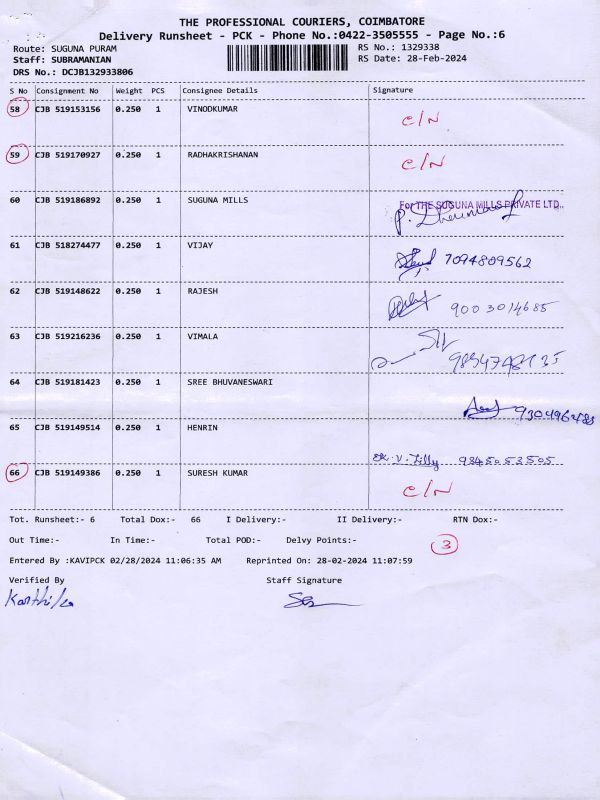 THE PROFESSIONAL COURIERS, COIMBATORE
Delivery Runsheet - PCK - Phone No.:0422-3505555 - Page No.:6
Route: SUGUNA PURAM RS No.: 1329338
Staff: SUBRAMANIAN RS Date: 28-Feb-2024
DRS No.: DCJB132933806
S No Consignment No Weight PCS Consignee Details Signature
58 CJB 519153156 0.250 1 VINODKUMAR C/N
59 CJB 519170927 0.250 1 RADHAKRISHANAN C/N
60 CJB 519186892 0.250 1 SUGUNA MILLS For THE SUGUNA MILLS PRIVATE LTD.,
61 CJB 518274477 0.250 1 VIJAY 7094809562
62 CJB 519148622 0.250 1 RAJESH 9003014685
63 CJB 519216236 0.250 1 VIMALA
64 CJB 519181423 0.250 1 SREE BHUVANESWARI
65 CJB 519149514 0.250 1 HENRIN V. Lilly 9345053505
66 CJB 519149386 0.250 1 SURESH KUMAR C/N
Tot. Runsheet:- 6 Total Dox:- 66 I Delivery:- II Delivery:- RTN Dox:-
Out Time:- In Time:- Total POD:- Delvy Points:- 3
Entered By :KAVIPCK 02/28/2024 11:06:35 AM Reprinted On: 28-02-2024 11:07:59
Verified By Staff Signature
Karthika